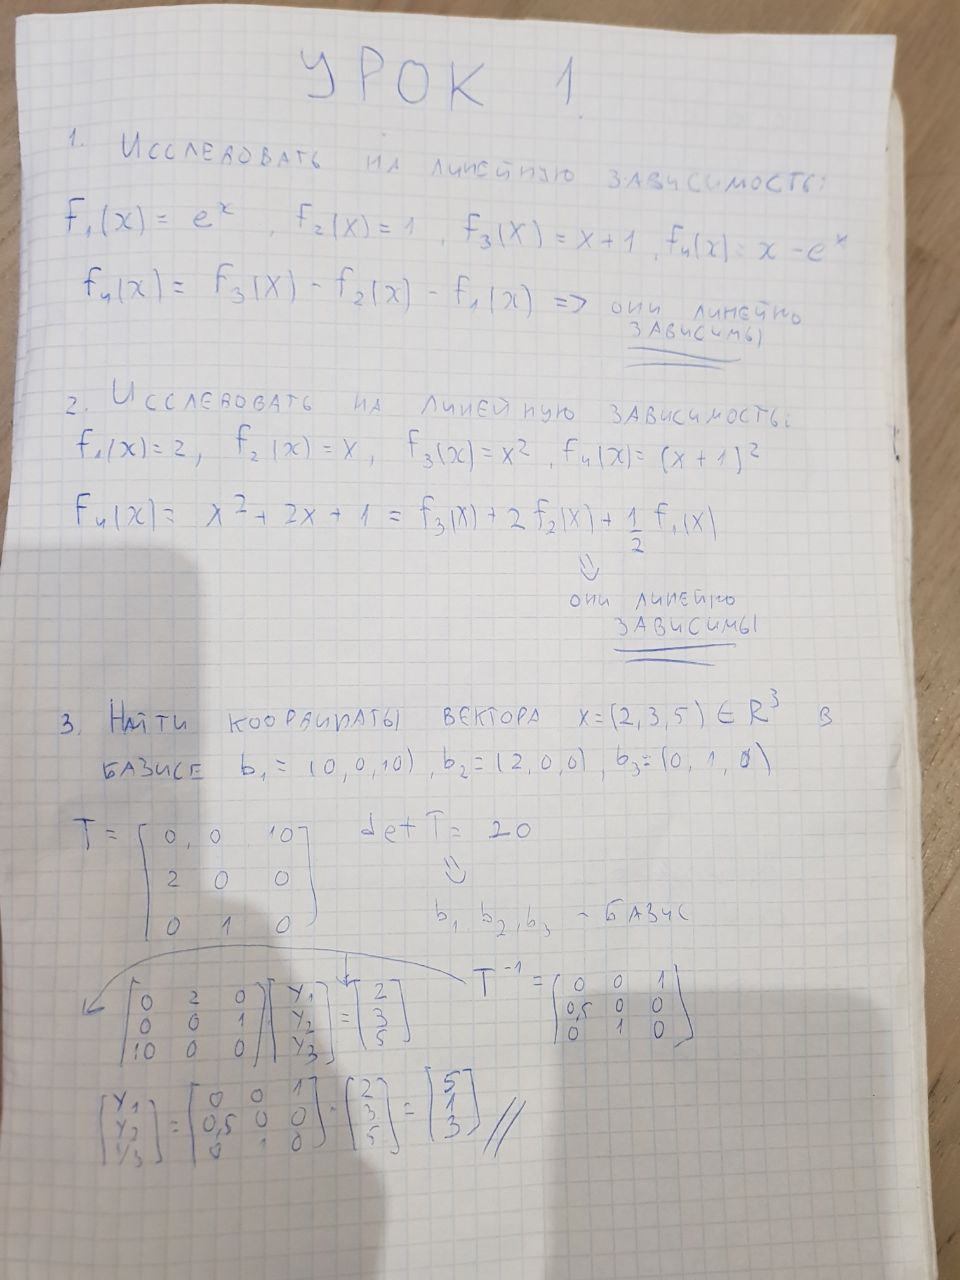 УРОК 1.
1. Исследовать на линейную зависимость:
f₁(x) = eˣ, f₂(x) = 1, f₃(x) = x + 1, f₄(x) = x - eˣ
f₄(x) = f₃(x) - f₂(x) - f₁(x) => они линейно
зависимы
2. Исследовать на линейную зависимость:
f₁(x) = 2, f₂(x) = x, f₃(x) = x², f₄(x) = (x + 1)²
f₄(x) = x² + 2x + 1 = f₃(x) + 2 f₂(x) + 1/2 f₁(x)
⇓
они линейно
зависимы
3. Найти координаты вектора x = (2, 3, 5) ∈ R³ в
базисе b₁ = (0, 0, 10), b₂ = (2, 0, 0), b₃ = (0, 1, 0)
T = [0, 0 10] det T = 20
[2 0 0] ⇓
[0 1 0] b₁, b₂, b₃ - базис
[0 2 0] [y₁] = [2] T⁻¹ = [0 0 1]
[0 0 1] [y₂] [3] [0,5 0 0]
[10 0 0] [y₃] [5] [0 1 0]
[y₁] = [0 0 1] · [2] = [5]
[y₂] [0,5 0 0] [3] [1]
[y₃] [0 1 0] [5] [3] //